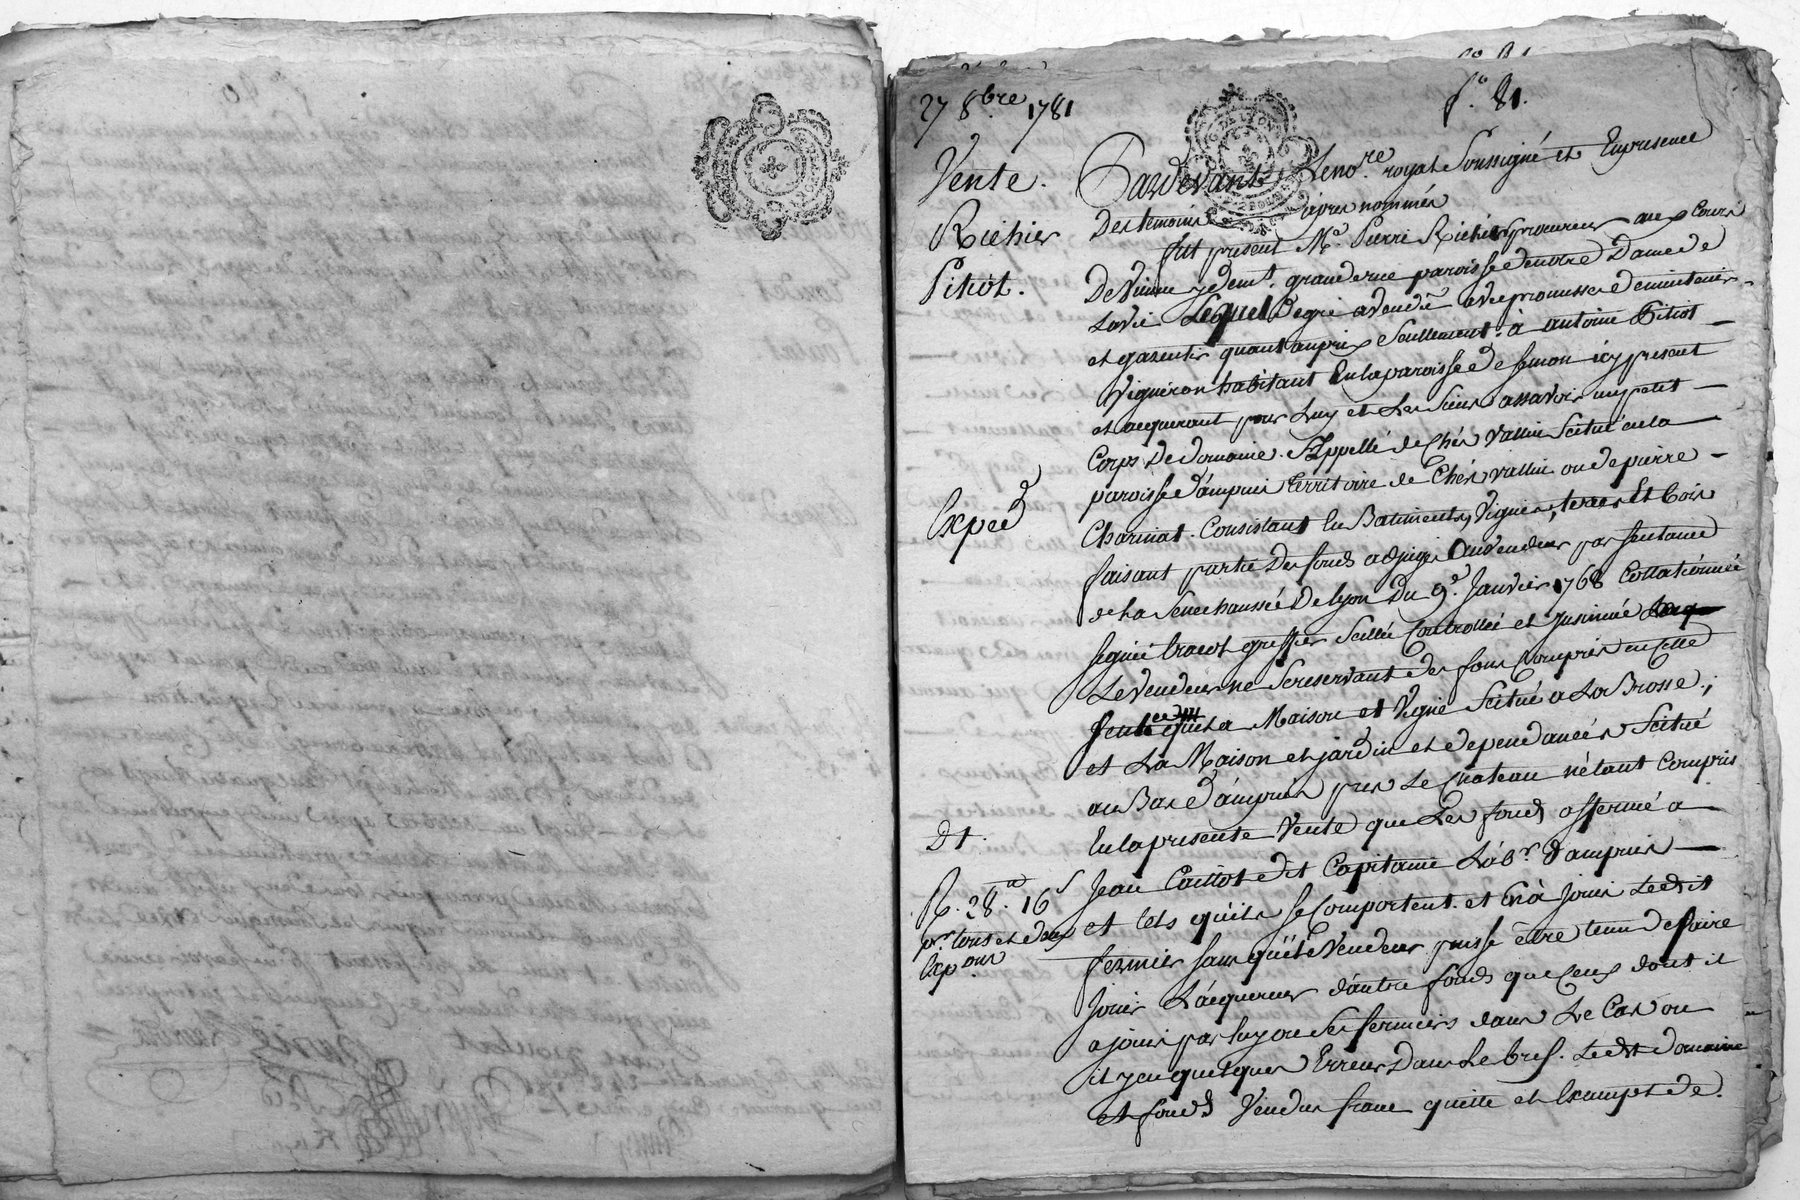 27 8.bre 1781
f.o 81.
Vente.
Richier
Pitiot.
Exped
D t.
R. 28.tt 16 s
p.r tous et deux
Exp.ons
Pardevant Le no.re royal Soussigné et En presence
Des temoins après nommés
fut present M.e Pierre Richier procureur aux Cours
De Vienne y dem.t grande rue paroisse de notre Dame de
Lavie Lequel De gré a vendu avec promesse de maintenir
et garentir quant au prix Seullement à antoine Pitiot
Vigneron habitant En la paroisse de Semon icy present
et acquerant pour Luy et Les Siens assavoir un petit
Corps De domaine Appellé de Chés Vallin Scitué en la
paroisse d'ampuis territoire de Chés vallin ou de pierre
Charinat. Consistant En Batiments, Vignes, terres Et bois
faisant partie Des fonds adjugés Au vendeur par Sentence
de La Senechaussée De lyon Du 9.e Janvier 1768 Collationnée
Signée greffier Scellée Controllée et insinuée
Le vendeur ne Se reservant des fons Compris en icelle
Sentence que La Maison et Vigne Scitué a La Brosse ;
et La Maison et jardin et dependances Scitué
au Bas D'ampuis pres Le Chateau n'etant Compris
En la presente Vente que Les fonds affermé a
Jean Caillot dit Capitaine Lab.r D'ampuis
et tels qu'ils Se Comportent et En à Joui Ledit
fermier Sans que Le Vendeur puisse être tenu de faire
Jouir L'acquereur d'autre fonds que Ceux dont il
a joui par luy ou Ses fermiers dans Le Cas ou
il y eu quelques Erreurs Dans Le bref. Ledit domaine
et fonds Vendus franc quitte et Exampt de.